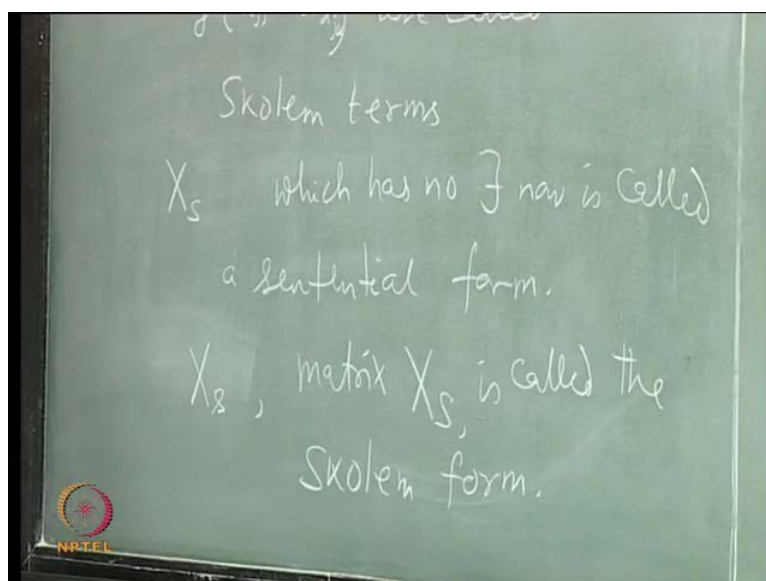 are called
Skolem terms
X_s which has no ∃ now is called
a sentential form.
X_s, matrix X_s, is called the
Skolem form.
NPTEL